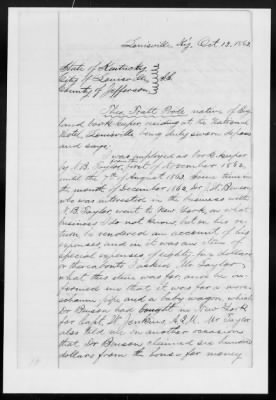 Louisville Ky. Oct 13, 1863.
State of Kentucky
City of Louisville ss.
County of Jefferson
Thos Pratt Poole native of
land book keeper residing at the National
Hotel Louisville being duly sworn deposes
and says:
was employed as book-keeper
by N.B. Taylor, from November 1862
until the 7th of August 1863.
the month of December 1862 Dr. Buison
who was interested in the business with
N.B. Taylor, went to New York, on what
business I do not know, but on his re-
turn he rendered an account of his
expenses, and in it was an item of
special expenses of eighty five dollars
or thereabouts I asked Mr Taylor
what this item was for, and he in-
formed me that it was for a meer-
schaum pipe and a baby wagon, which
Dr Buison had bought in New York
for Capt. Jenkins A.Q.M. Mr Taylor
also told me on another occasion
that Dr Buison claimed six hundred
dollars from the house for money